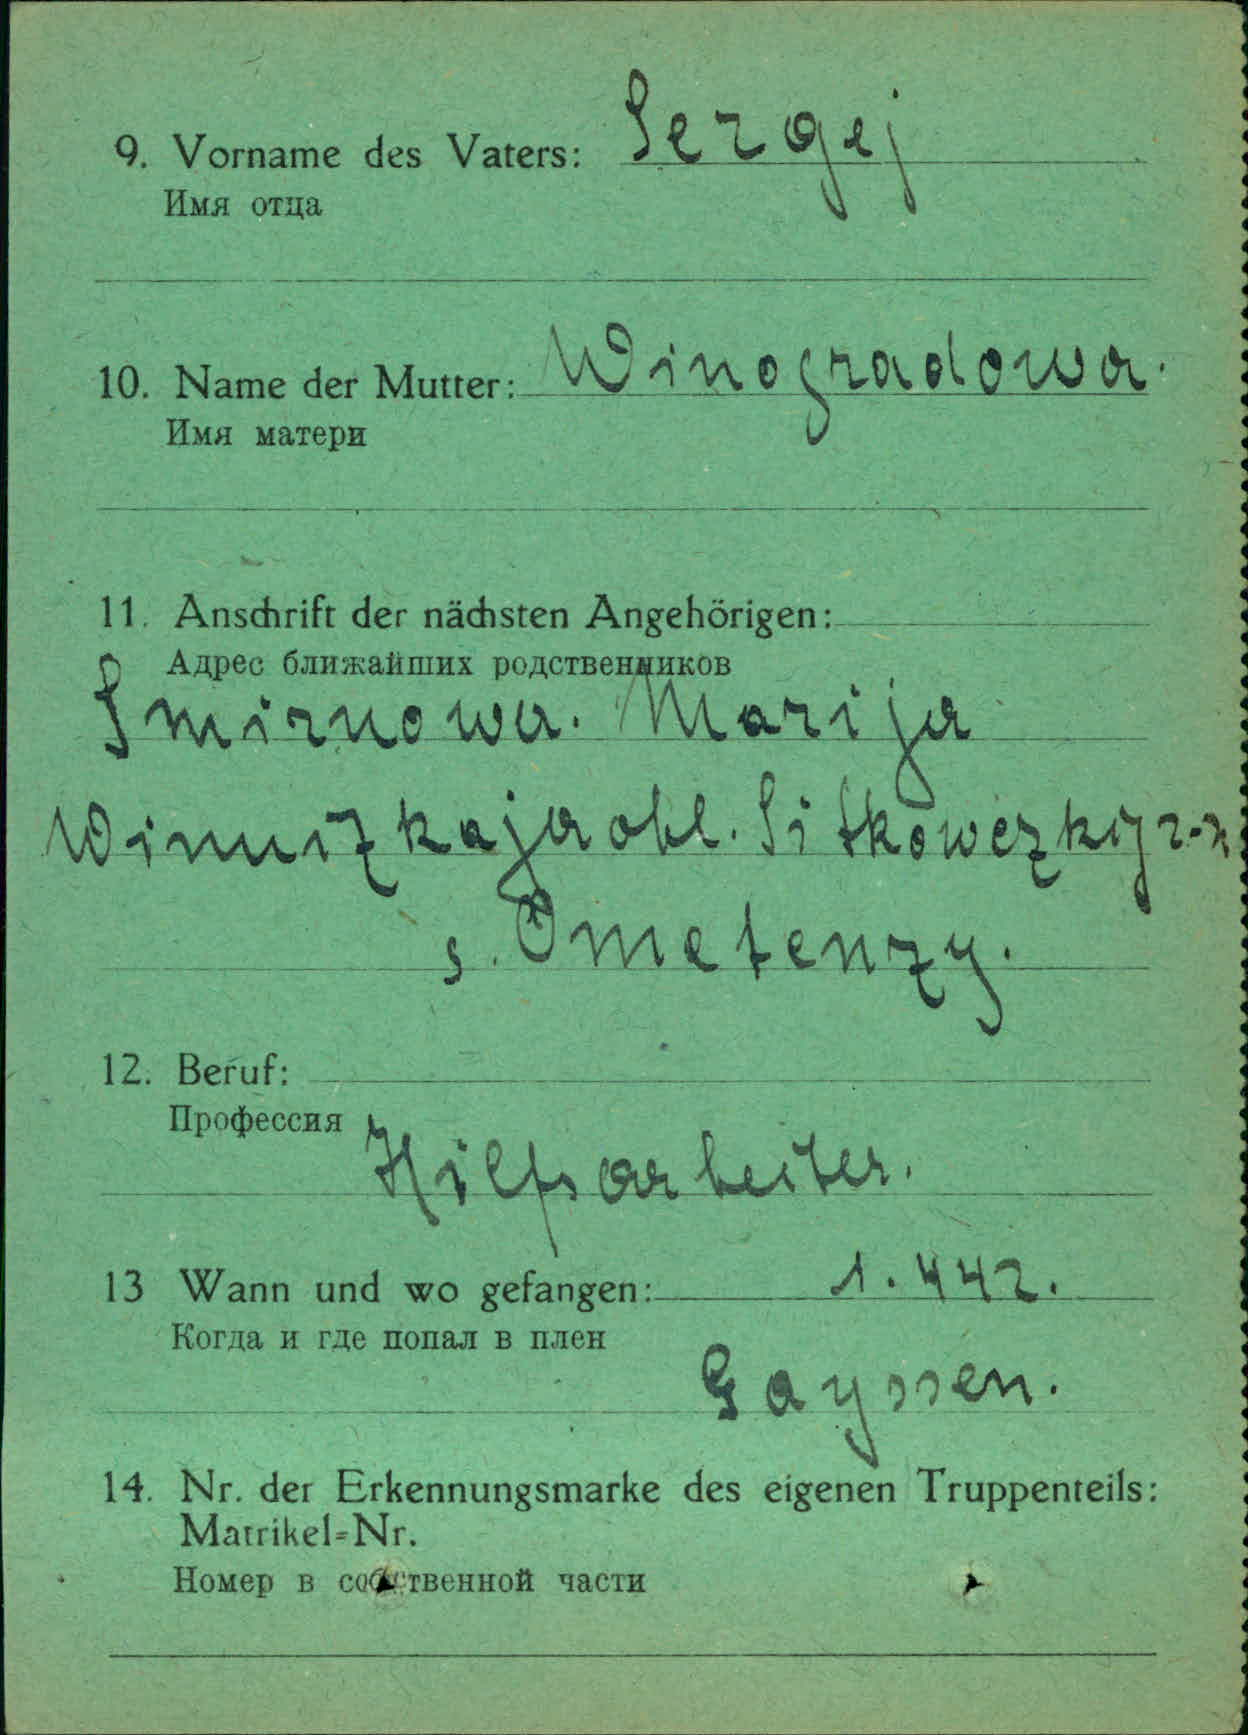 9. Vorname des Vaters: Sergej
Имя отца
10. Name der Mutter: Winogradowa.
Имя матери
11. Anschrift der nächsten Angehörigen:
Адрес ближайших родственников
Smirnowa. Marija
Winnizkaja obl. Sitkowezkij r-n
s. Ometenzy.
12. Beruf:
Профессия
Hilfsarbeiter.
13 Wann und wo gefangen: 1.442.
Когда и где попал в плен
Gayssen.
14. Nr. der Erkennungsmarke des eigenen Truppenteils:
Matrikel=Nr.
Номер в собственной части